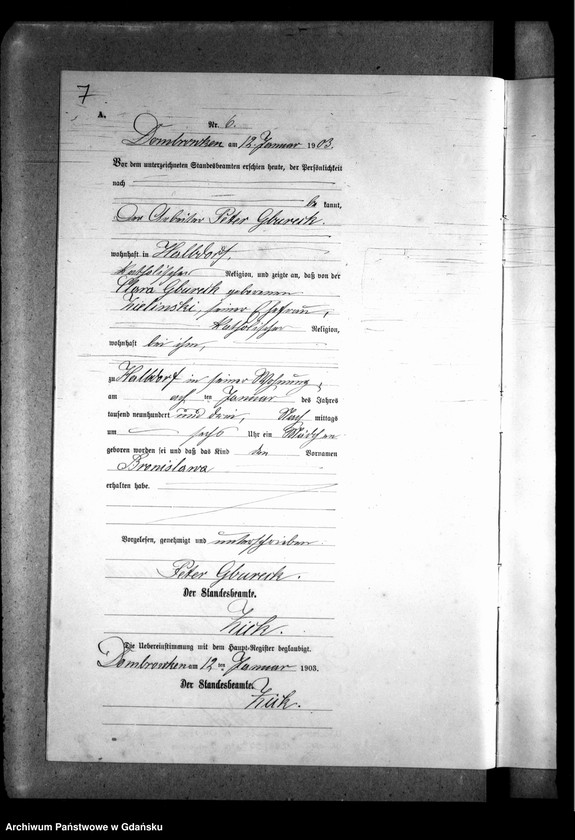 7
A.
Nr. 6.
Dombrowken am 12. Januar 1903.
Vor dem unterzeichneten Standesbeamten erschien heute, der Persönlichkeit
nach
be kannt,
der Arbeiter Peter Gbureck.
wohnhaft in Halbdorf,
katholischer Religion, und zeigte an, daß von der
Clara Gbureck geborenen
Zielinski, seiner Ehefrau,
katholischer Religion,
wohnhaft bei ihm,
zu Halbdorf in seiner Wohnung,
am ten Januar des Jahres
tausend neunhundert und drei, Nach mittags
um sechs Uhr ein Mädchen
geboren worden sei und daß das Kind den Vornamen
Bronislawa
erhalten habe.
Vorgelesen, genehmigt und unterschrieben.
Peter Gbureck.
Der Standesbeamte.
Die Uebereinstimmung mit dem Haupt-Register beglaubigt.
Dombrowken am 12 ten Januar 1903.
Der Standesbeamte.
Archiwum Państwowe w Gdańsku